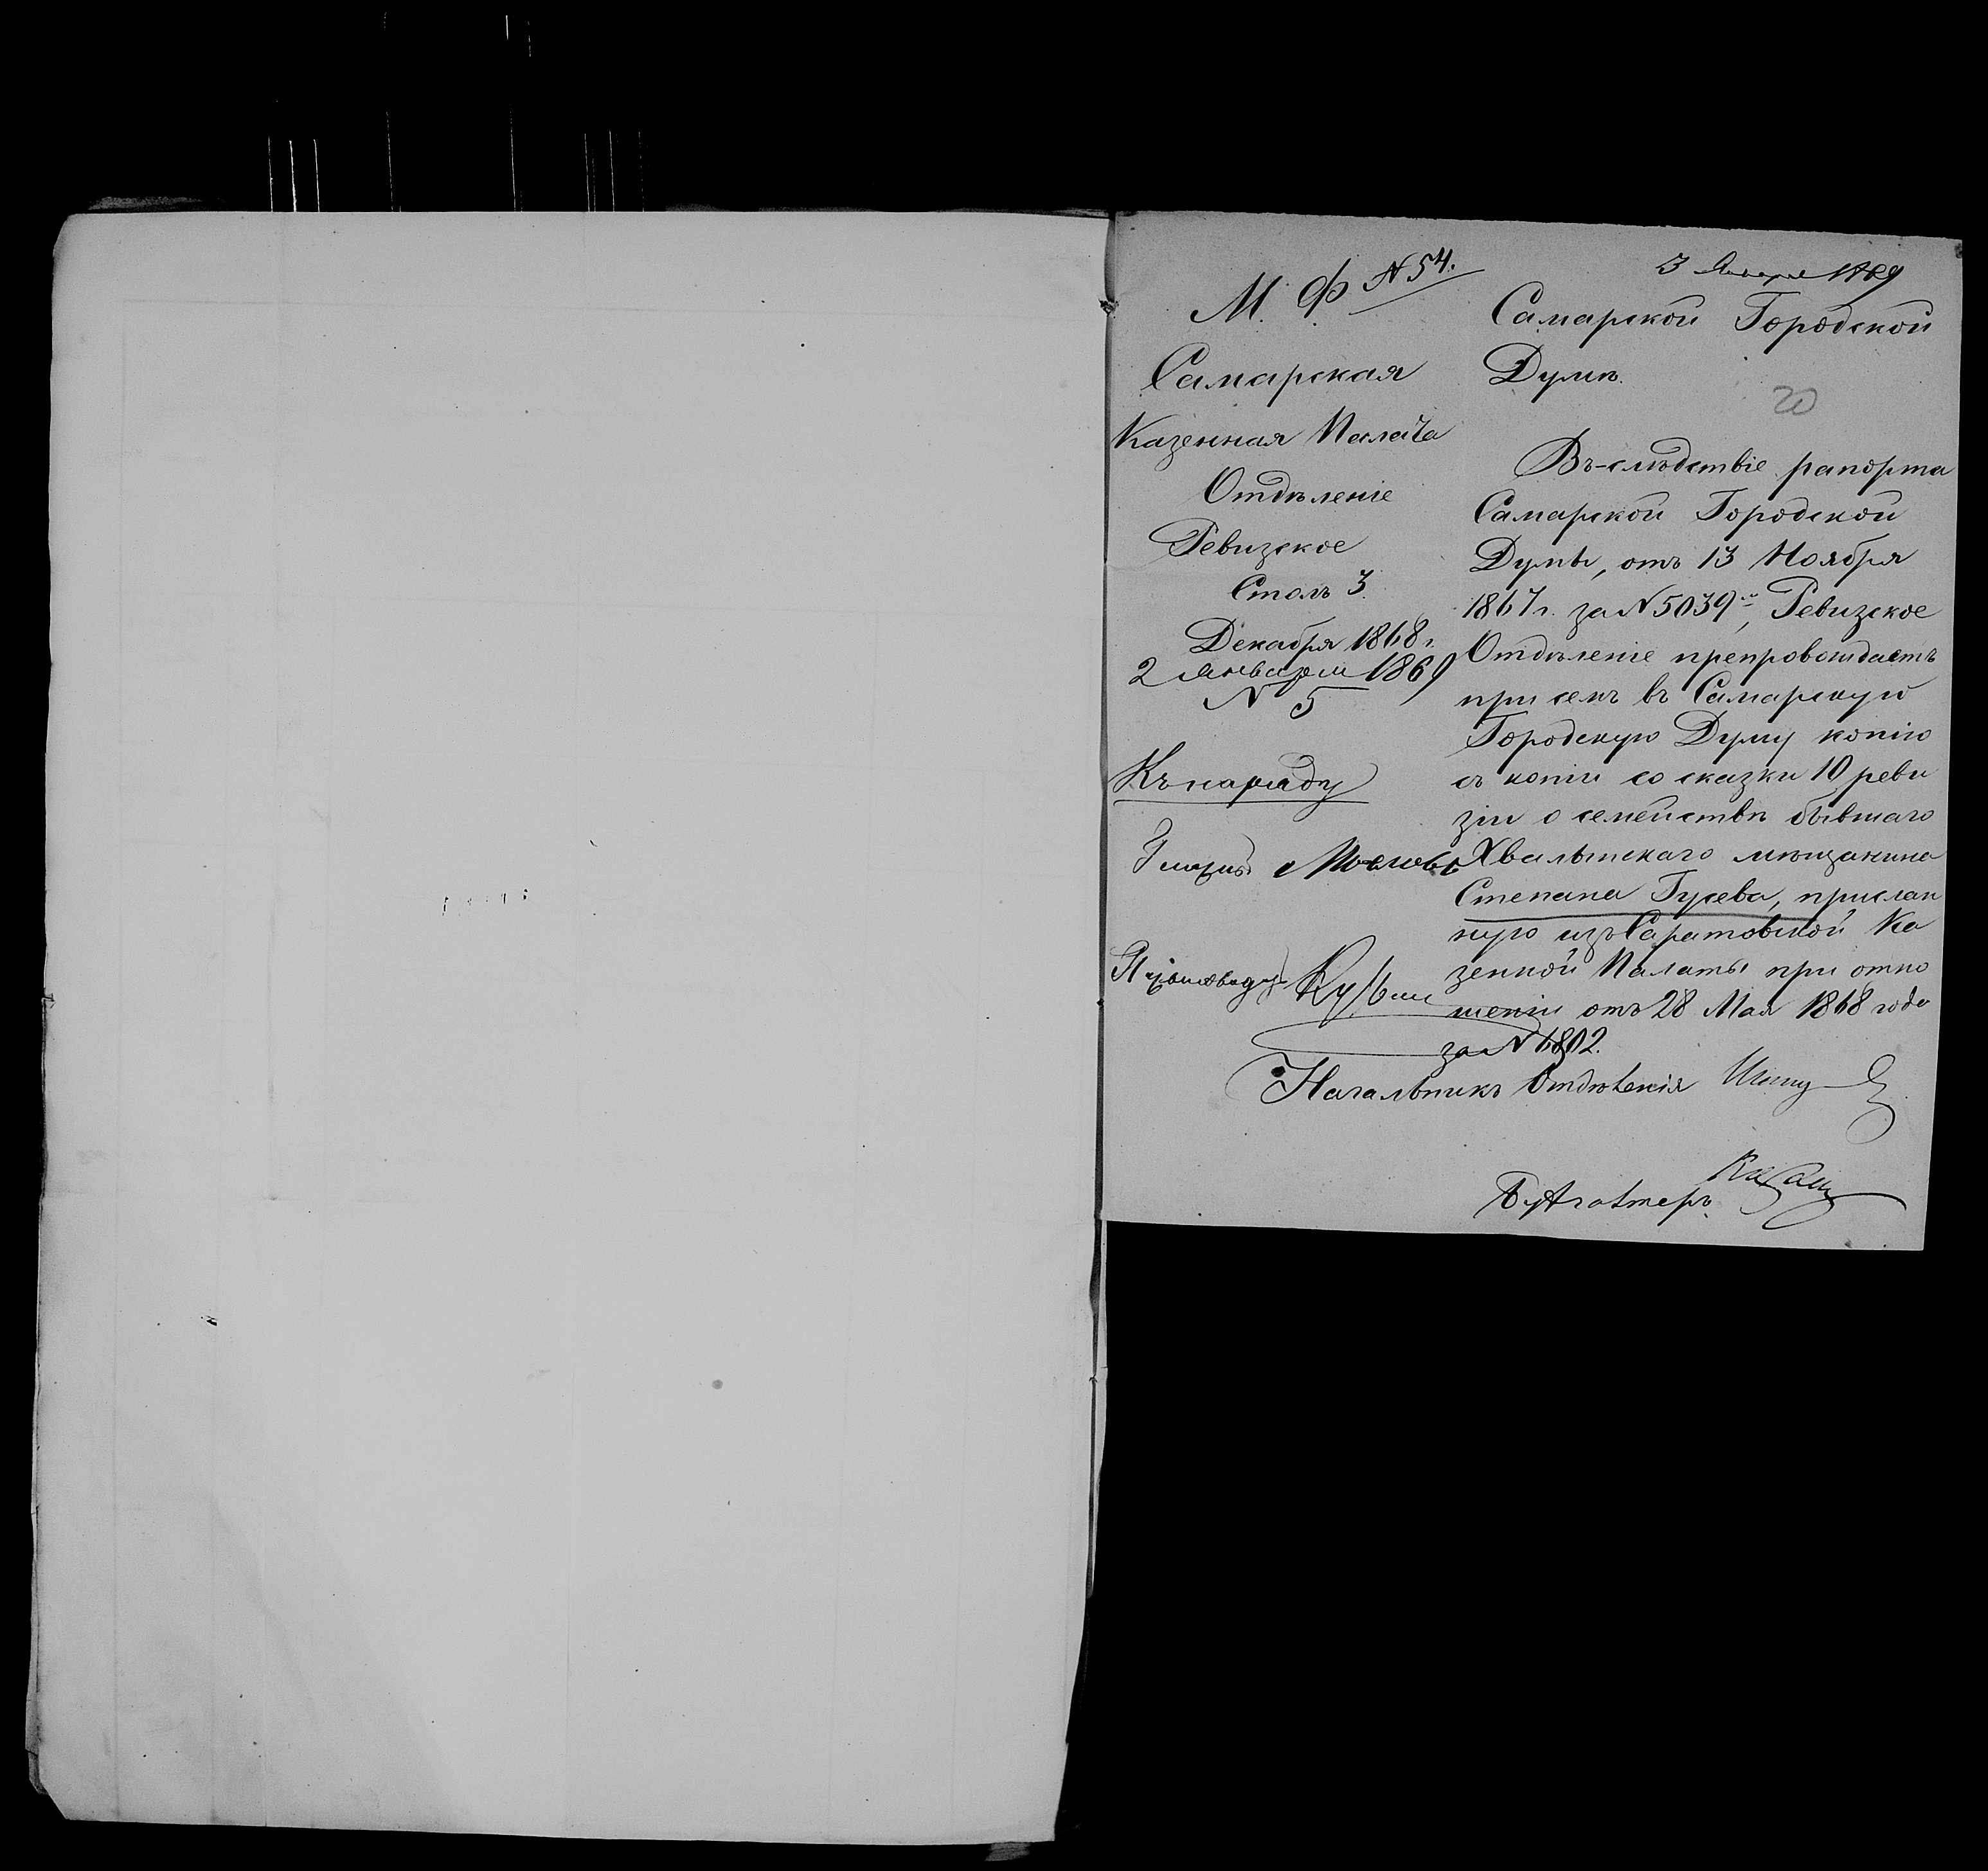 М. Ф
N 54.
Самарская
Казенная Палата
Отдѣленіе
Ревизское
Столъ 3.
Декабря 1868 г.
2 Января 1869
N 5
Къ наряду
3 Января 1869
Самарской Городской
Думѣ.
20
Въ-слѣдствіе рапорта
Самарской Городской
Думы, отъ 13 Ноября
1867 г. за N 5039, Ревизское
Отдѣленіе препровождаетъ
при семъ въ Самарскую
Городскую Думу копію
съ копіи со сказки 10 реви
зіи о семействѣ бывшаго
Хвалынскаго мѣщанина
Степана Гусева, прислан
ную изъ Саратовской Ка
зенной Палаты при отно
шеніи отъ 28 Мая 1868 года
за N 6802.
Начальникъ Отдѣленія
Бухгалтеръ